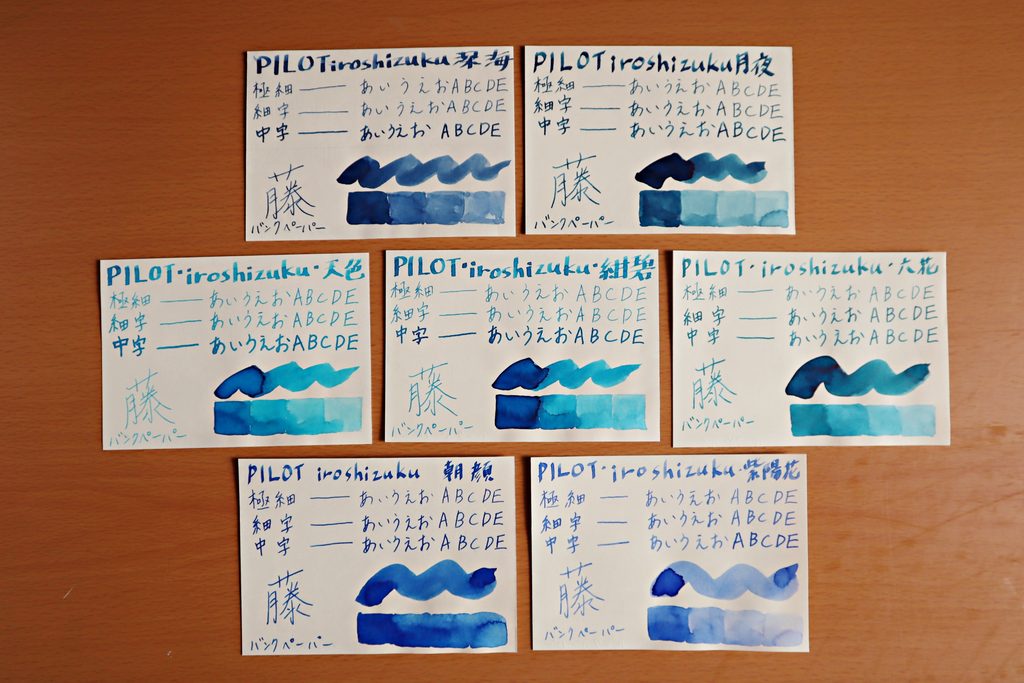 PILOT iroshizuku 深海
極細 — あいうえおABCDE
細字 — あいうえおABCDE
中字 — あいうえお ABCDE
藤
バンクペーパー
PILOT iroshizuku 月夜
極細 — あいうえお ABCDE
細字 — あいうえお ABCDE
中字 — あいうえお ABCDE
藤
バンクペーパー
PILOT・iroshizuku・天色
極細 — あいうえおABCDE
細字 — あいうえおABCDE
中字 — あいうえおABCDE
藤
バンクペーパー
PILOT・iroshizuku・紺碧
極細 — あいうえお ABCDE
細字 — あいうえお ABCDE
中字 — あいうえお ABCDE
藤
バンクペーパー
PILOT・iroshizuku・六花
極細 — あいうえお ABCDE
細字 — あいうえお ABCDE
中字 — あいうえお ABCDE
藤
バンクペーパー
PILOT iroshizuku 朝顔
極細 — あいうえお ABCDE
細字 — あいうえお ABCDE
中字 — あいうえお ABCDE
藤
バンクペーパー
PILOT・iroshizuku・紫陽花
極細 — あいうえお ABCDE
細字 — あいうえお ABCDE
中字 — あいうえお ABCDE
藤
バンクペーパー